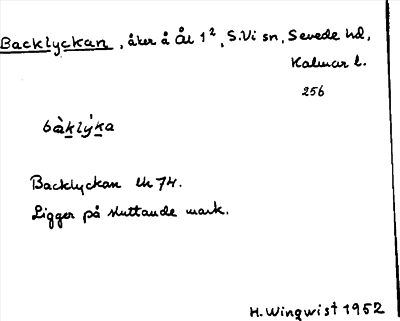 Backlyckan, åker å Ål 1², S.Vi sn, Sevede hd,
Kalmar l.
256
bàklýka
Backlyckan lh 74.
Ligger på sluttande mark.
H. Wingwist 1952